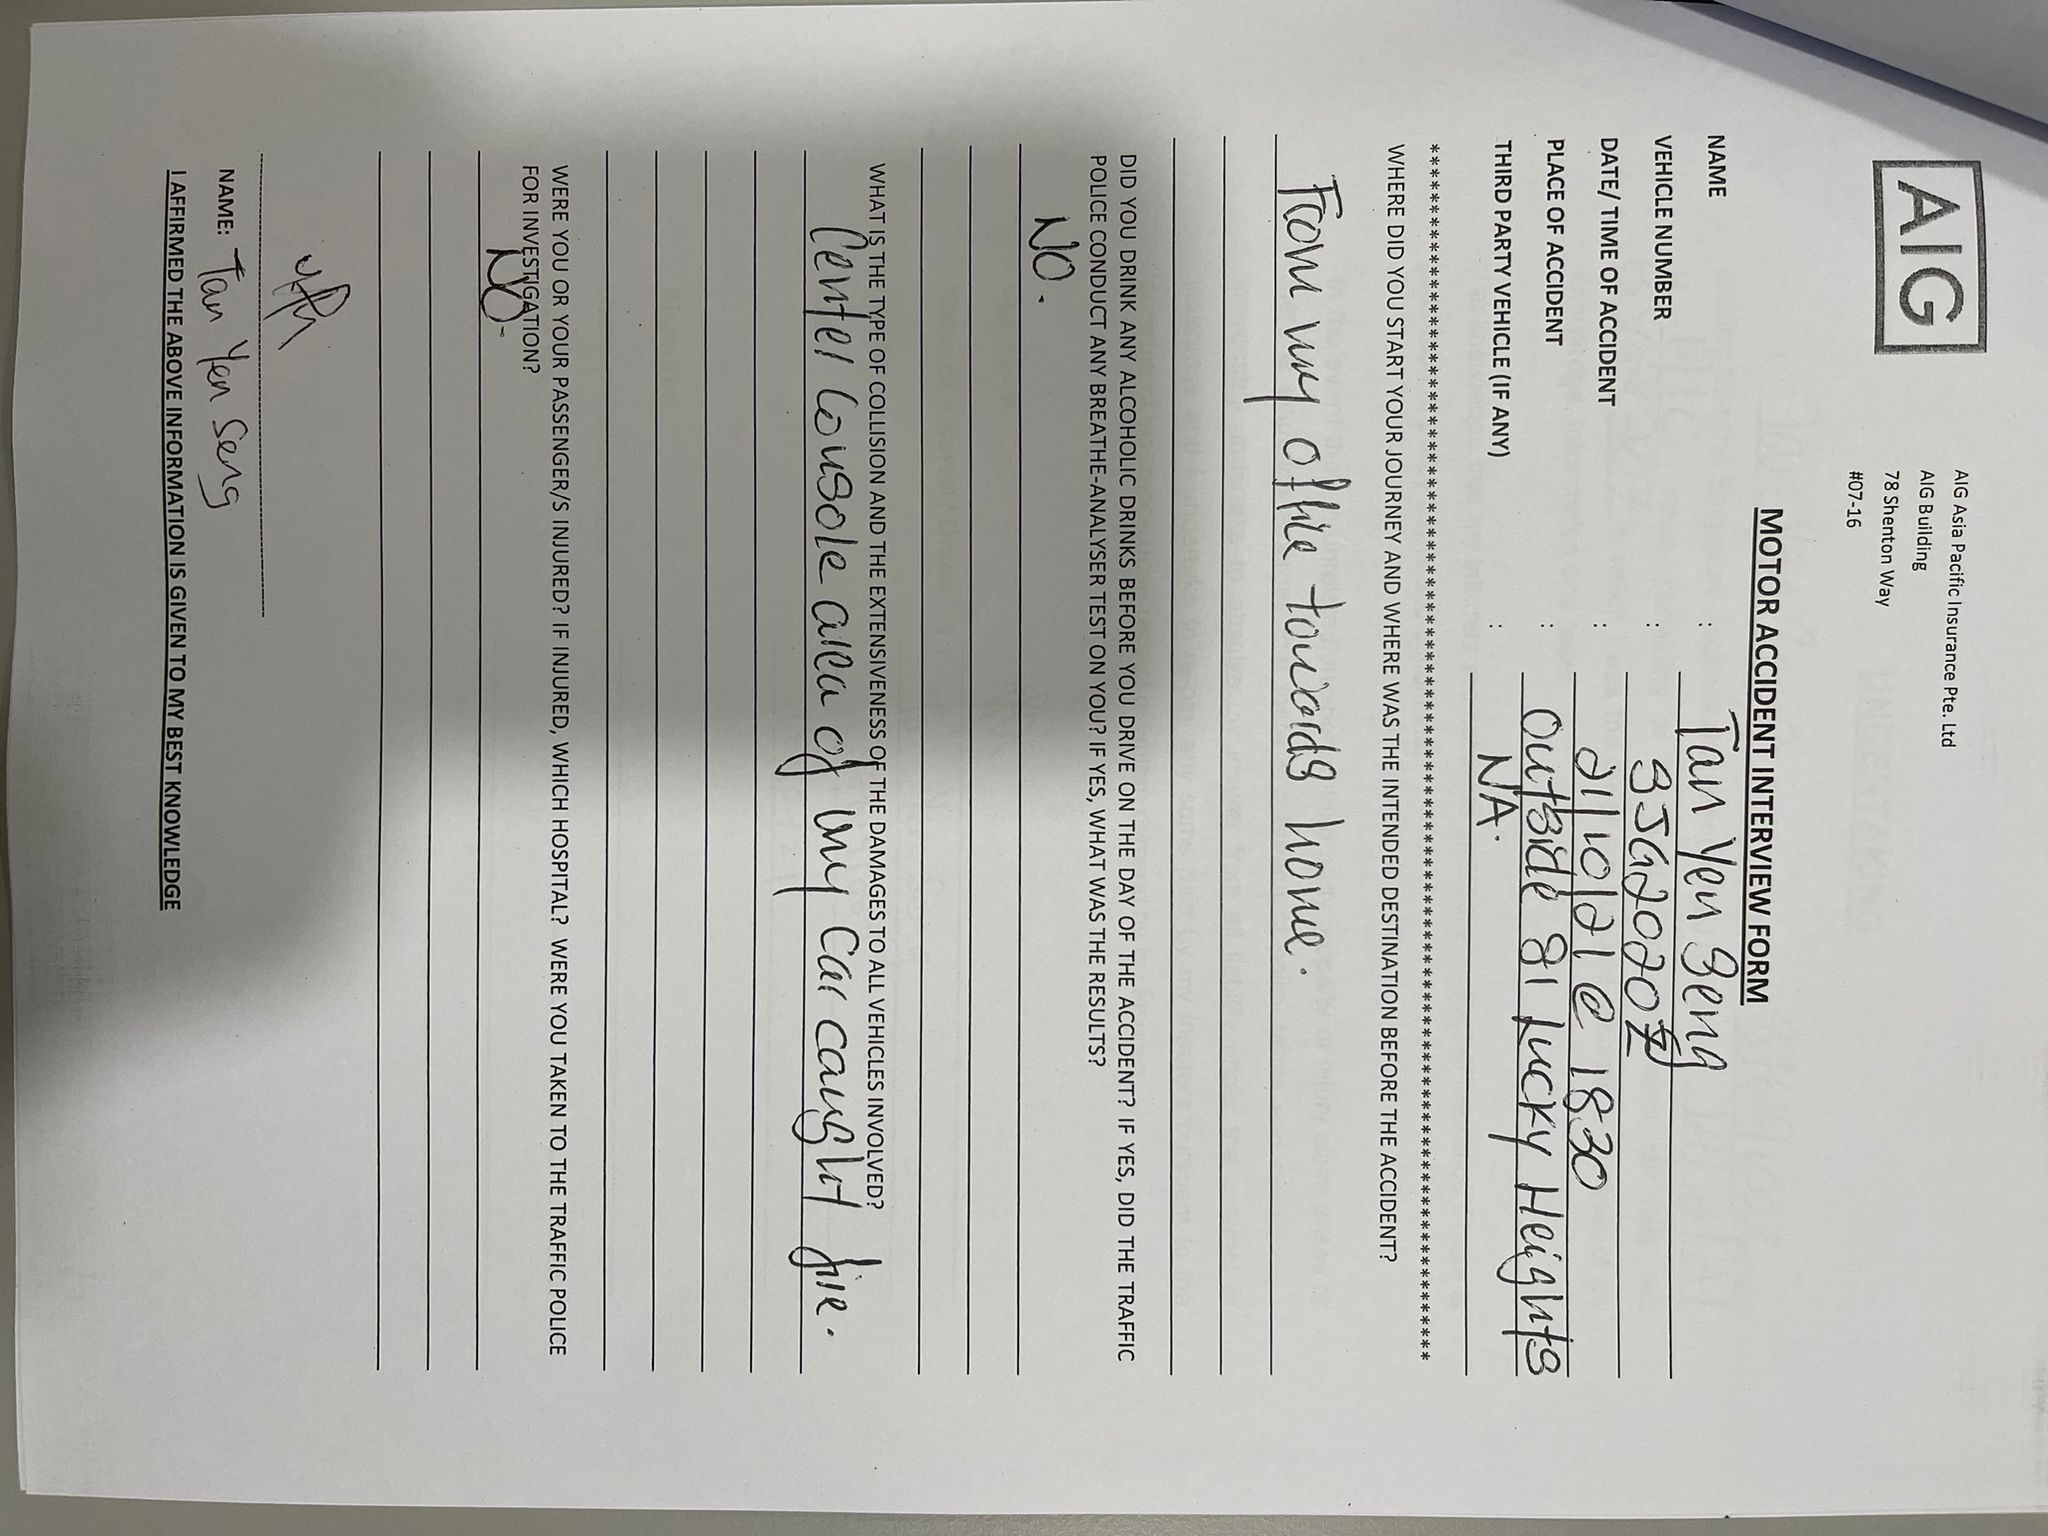 AIG
AIG Asia Pacific Insurance Pte. Ltd
AIG Building
78 Shenton Way
#07-16
MOTOR ACCIDENT INTERVIEW FORM
NAME : Tan Yen Seng
VEHICLE NUMBER : SJG2020Z
DATE/ TIME OF ACCIDENT : 21/10/21 @ 1830
PLACE OF ACCIDENT : Outside 81 Lucky Heights
THIRD PARTY VEHICLE (IF ANY) : NA.
WHERE DID YOU START YOUR JOURNEY AND WHERE WAS THE INTENDED DESTINATION BEFORE THE ACCIDENT?
From my office towards home.
DID YOU DRINK ANY ALCOHOLIC DRINKS BEFORE YOU DRIVE ON THE DAY OF THE ACCIDENT? IF YES, DID THE TRAFFIC
POLICE CONDUCT ANY BREATHE-ANALYSER TEST ON YOU? IF YES, WHAT WAS THE RESULTS?
NO.
WHAT IS THE TYPE OF COLLISION AND THE EXTENSIVENESS OF THE DAMAGES TO ALL VEHICLES INVOLVED?
Center Console area of my car caught fire.
WERE YOU OR YOUR PASSENGER/S INJURED? IF INJURED, WHICH HOSPITAL? WERE YOU TAKEN TO THE TRAFFIC POLICE
FOR INVESTIGATION?
NO.
NAME: Tan Yen Seng
I AFFIRMED THE ABOVE INFORMATION IS GIVEN TO MY BEST KNOWLEDGE